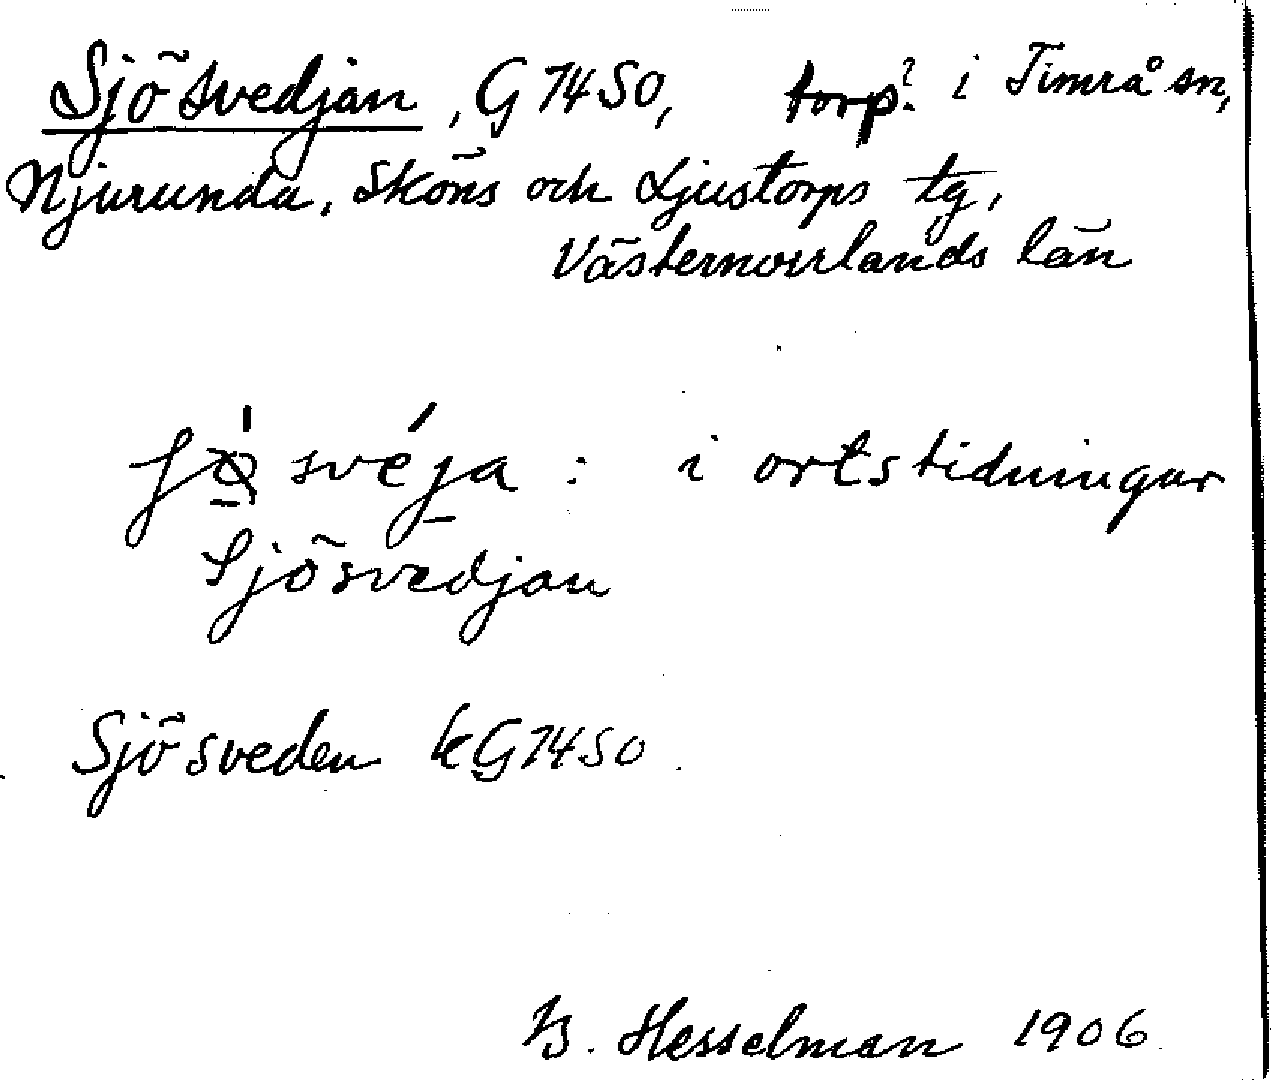 Sjösvedjan, G74SO, torp? i Timrå sn,
Njurunda, Sköns och Ljustorps tg,
Västernorrlands län
svéja : i ortstidningar
Sjösvedjan
Sjösveden kG74SO
B. Hesselman 1906